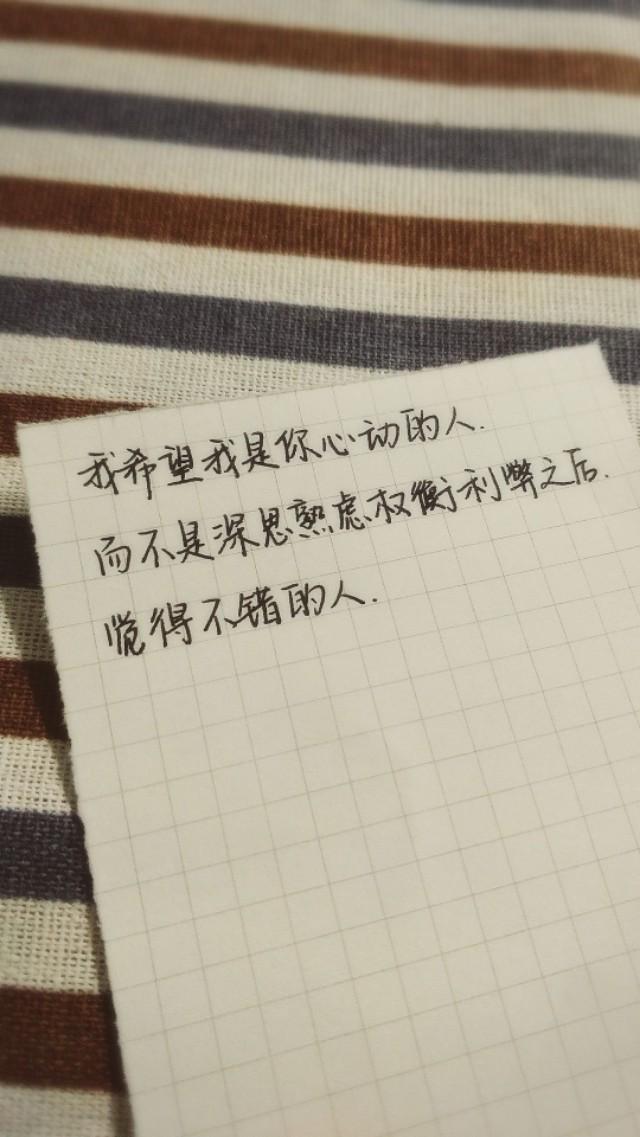 我希望我是你心动的人.
而不是深思熟虑权衡利弊之后.
觉得不错的人.